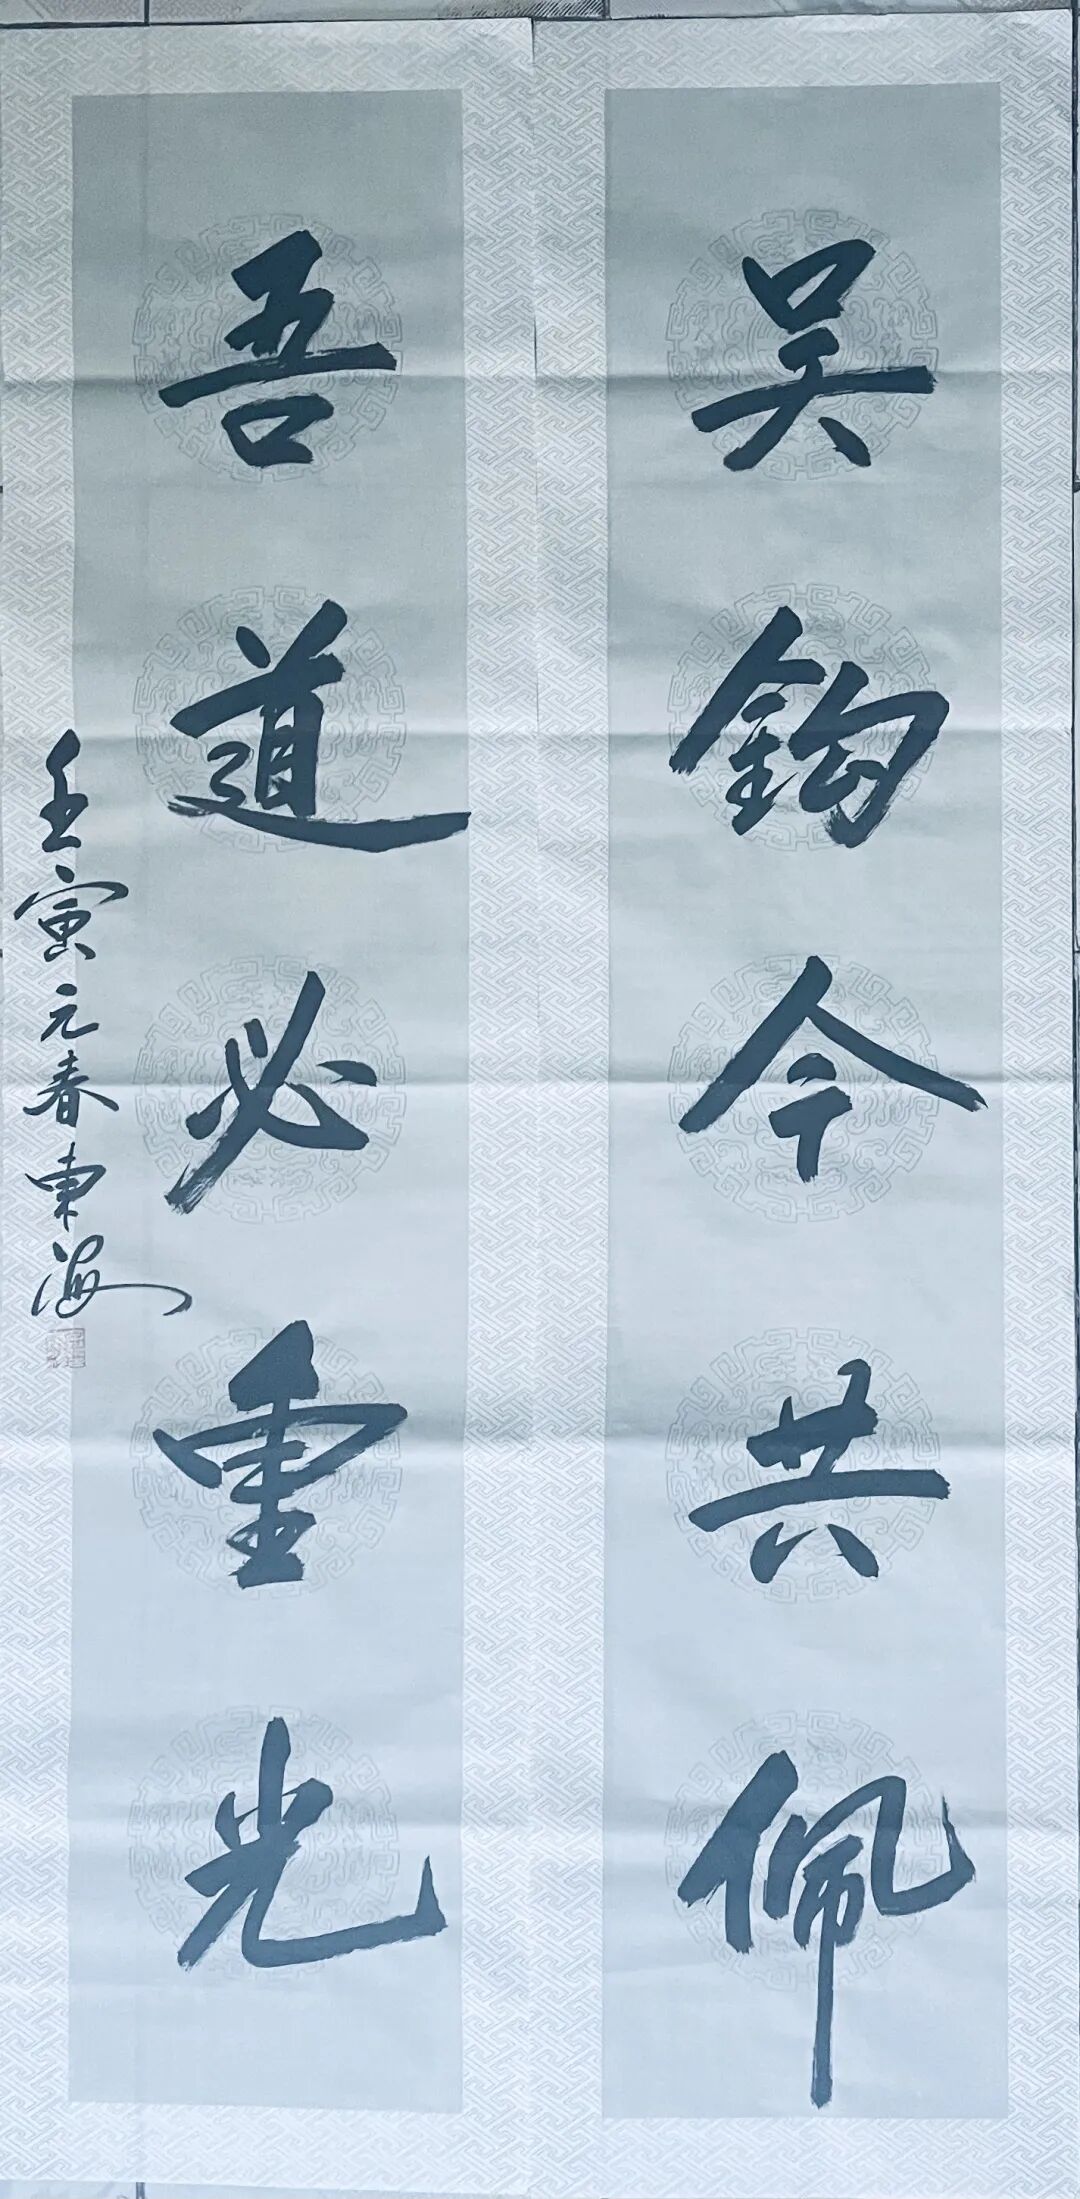 吴鈎今共佩
吾道必重光
壬寅元春東海